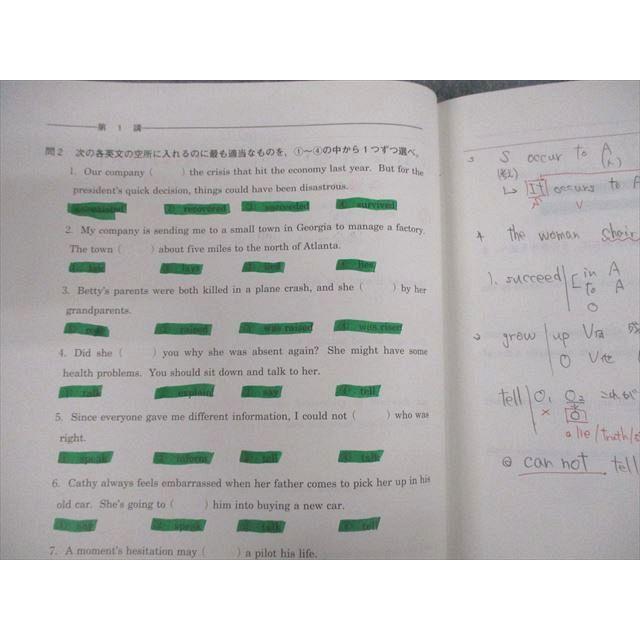 第 1 講
問2 次の各英文の空所に入れるのに最も適当なものを、①～④の中から1つずつ選べ。
1. Our company ( ) the crisis that hit the economy last year. But for the
president's quick decision, things could have been disastrous.
② recovered ③ succeeded ④ survived
2. My company is sending me to a small town in Georgia to manage a factory.
The town ( ) about five miles to the north of Atlanta.
② lays ④ lies
3. Betty's parents were both killed in a plane crash, and she ( ) by her
grandparents.
② raised ③ was raised ④ was risen
4. Did she ( ) you why she was absent again? She might have some
health problems. You should sit down and talk to her.
① talk ② explain ③ say ④ tell
5. Since everyone gave me different information, I could not ( ) who was
right.
① speak ② inform ③ talk ④ tell
6. Cathy always feels embarrassed when her father comes to pick her up in his
old car. She's going to ( ) him into buying a new car.
① say ② speak ③ talk ④ tell
7. A moment's hesitation may ( ) a pilot his life.
S occur to A
(人)
It occurs to A
V
the woman
). succeed in A
to A
O
grow up V自
O V他
tell O₁ O₂
a lie / truth /
cannot tell